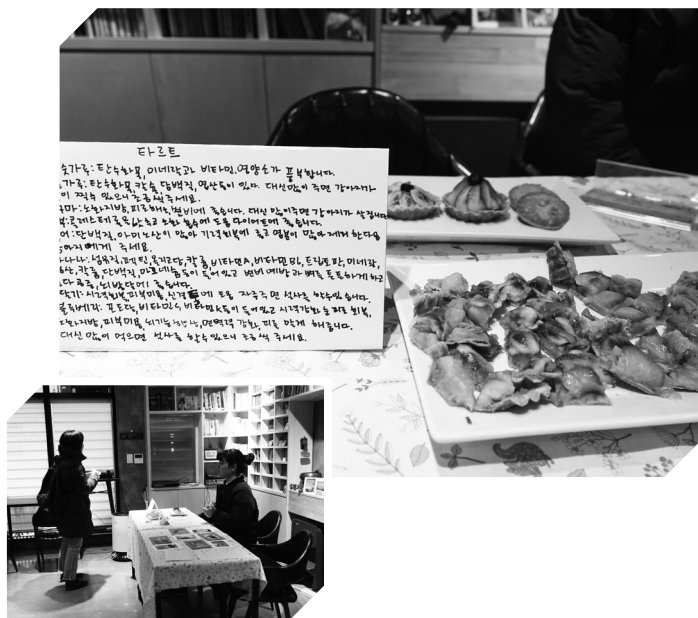 타르트
숫가루: 탄수화물, 미네랄과 비타민, 영양소가 풍부합니다.
가루: 탄수화물, 칼슘, 단백질, 영양 등이 있다. 대신 많이 주면 강아지가
이 찍수 있으니 조금씩 주세요.
구마: 노화지방, 피로해소, 변비에 좋습니다. 대신 많이주면 강아지가 살찝니다.
콜레스테롤
어: 단백질, 아미노산이 많아 기력회복에 좋고 염분이 많아 제거 한 다음
강아지에게 주세요.
나나: 섬유질, 펙틴, 올리고당, 칼륨, 비타민A, 비타민B6, 트립토판, 미네랄,
칼륨, 단백질, 마그네슘 등이 들어있고 변비 예방과 뼈를 튼튼하게 하고
좋습니다.
딸기: 시력회복, 피부미용, 신경 에 도움 자주주면 설사를 할수 있습니다.
블루베리: 포도당, 비타민C, 비타민K 등이 들어있고 시력강화, 눈 피로 회복,
노화지방, 피부미용, 뇌기능 향상, 면역력 강화, 피를 맑게 해줍니다.
대신 많이 먹으면 설사를 할수 있으니 조금씩 주세요.